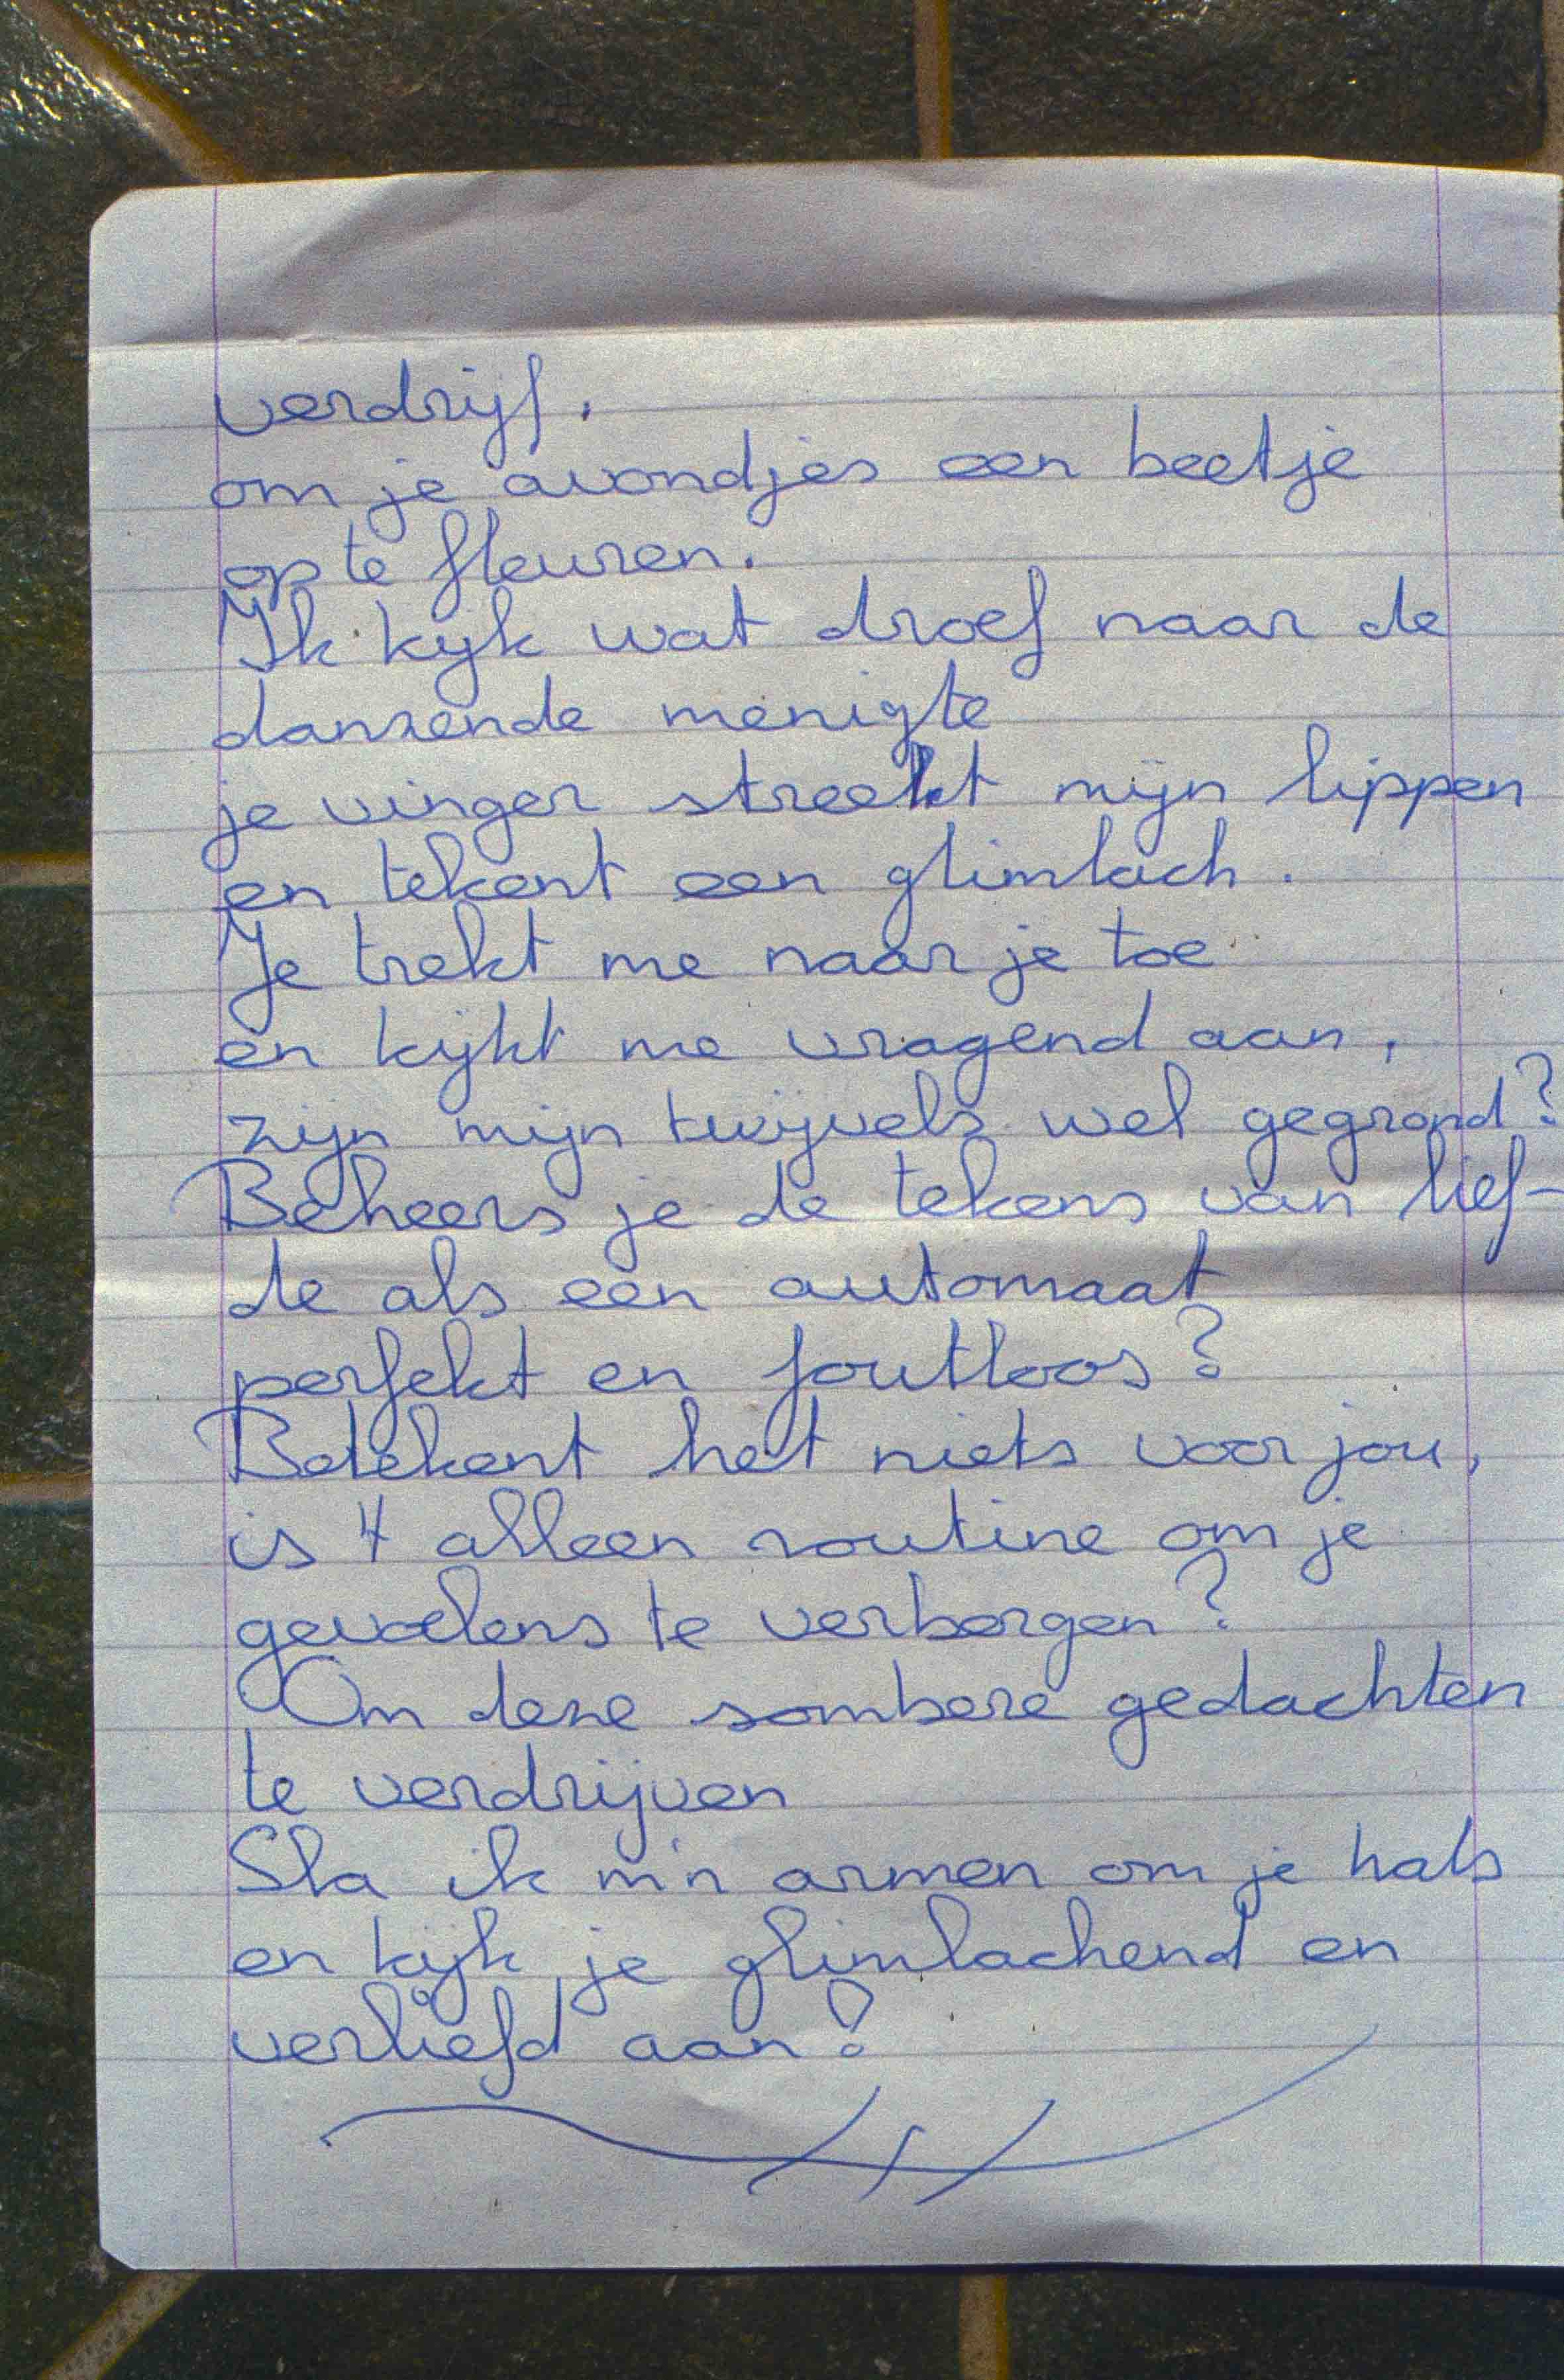 verdrijf,
om je avondjes een beetje
op te fleuren.
Ik kijk wat droef naar de
dansende menigte
je vinger streelt mijn lippen
en tekent een glimlach.
Je trekt me naar je toe
en kijkt me vragend aan,
zijn mijn twijvels wel gegrond?
Beheers je de tekens van lief-
de als een automaat
perfekt en foutloos?
Betekent het niets voor jou,
is 't alleen routine om je
gevoelens te verbergen?
Om deze sombere gedachten
te verdrijven
Sla ik m'n armen om je hals
en kijk je glimlachend en
verliefd aan!